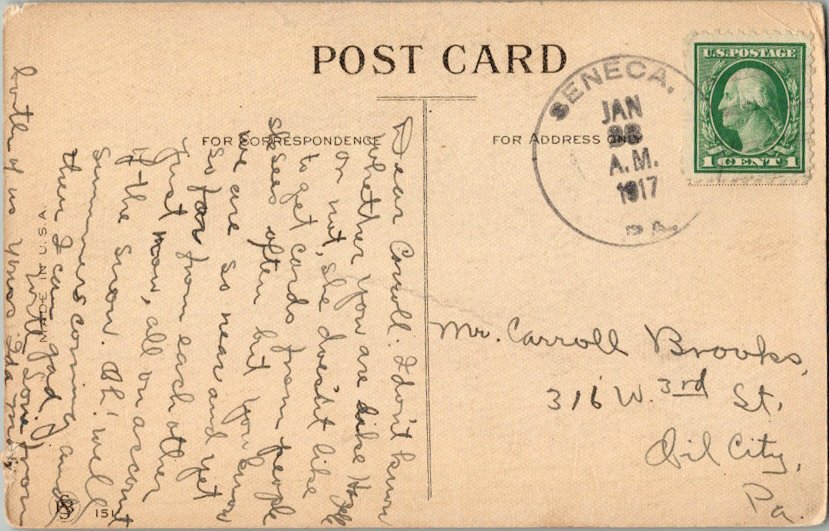 POST CARD
FOR CORRESPONDENCE
FOR ADDRESS ONLY
U.S. POSTAGE
1 CENT 1
SENECA,
JAN
A.M.
1917
PA.
Dear Carroll: I don't know
whether you are like
or not, she doesn't like
to get cards from people
she sees often but you know
we are so near and yet
so far from each other
just now, all on account
of the snow. Ah! well
summers coming and
then I can gad
with love from
both of us
Mr. Carroll Brooks,
316 W. 3rd St,
Oil City,
Pa.
MADE IN U.S.A.
151